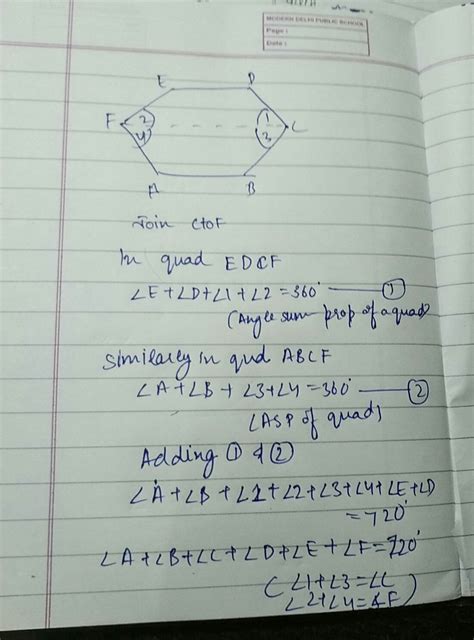 MODERN DELHI PUBLIC SCHOOL
Page :
Date :
E D
F 2 1 C
4 3
A B
Join C to F
In quad EDCF
∠E+∠D+∠1+∠2=360° ——— ①
(Angle sum prop of a quad)
Similarly in qud ABCF
∠A+∠B+∠3+∠4=360° ——— ②
(ASP of quad)
Adding ① & ②
∠A+∠B+∠1+∠2+∠3+∠4+∠E+∠D
=720°
∠A+∠B+∠C+∠D+∠E+∠F=720°
(∠1+∠3=∠C
∠2+∠4=∠F)